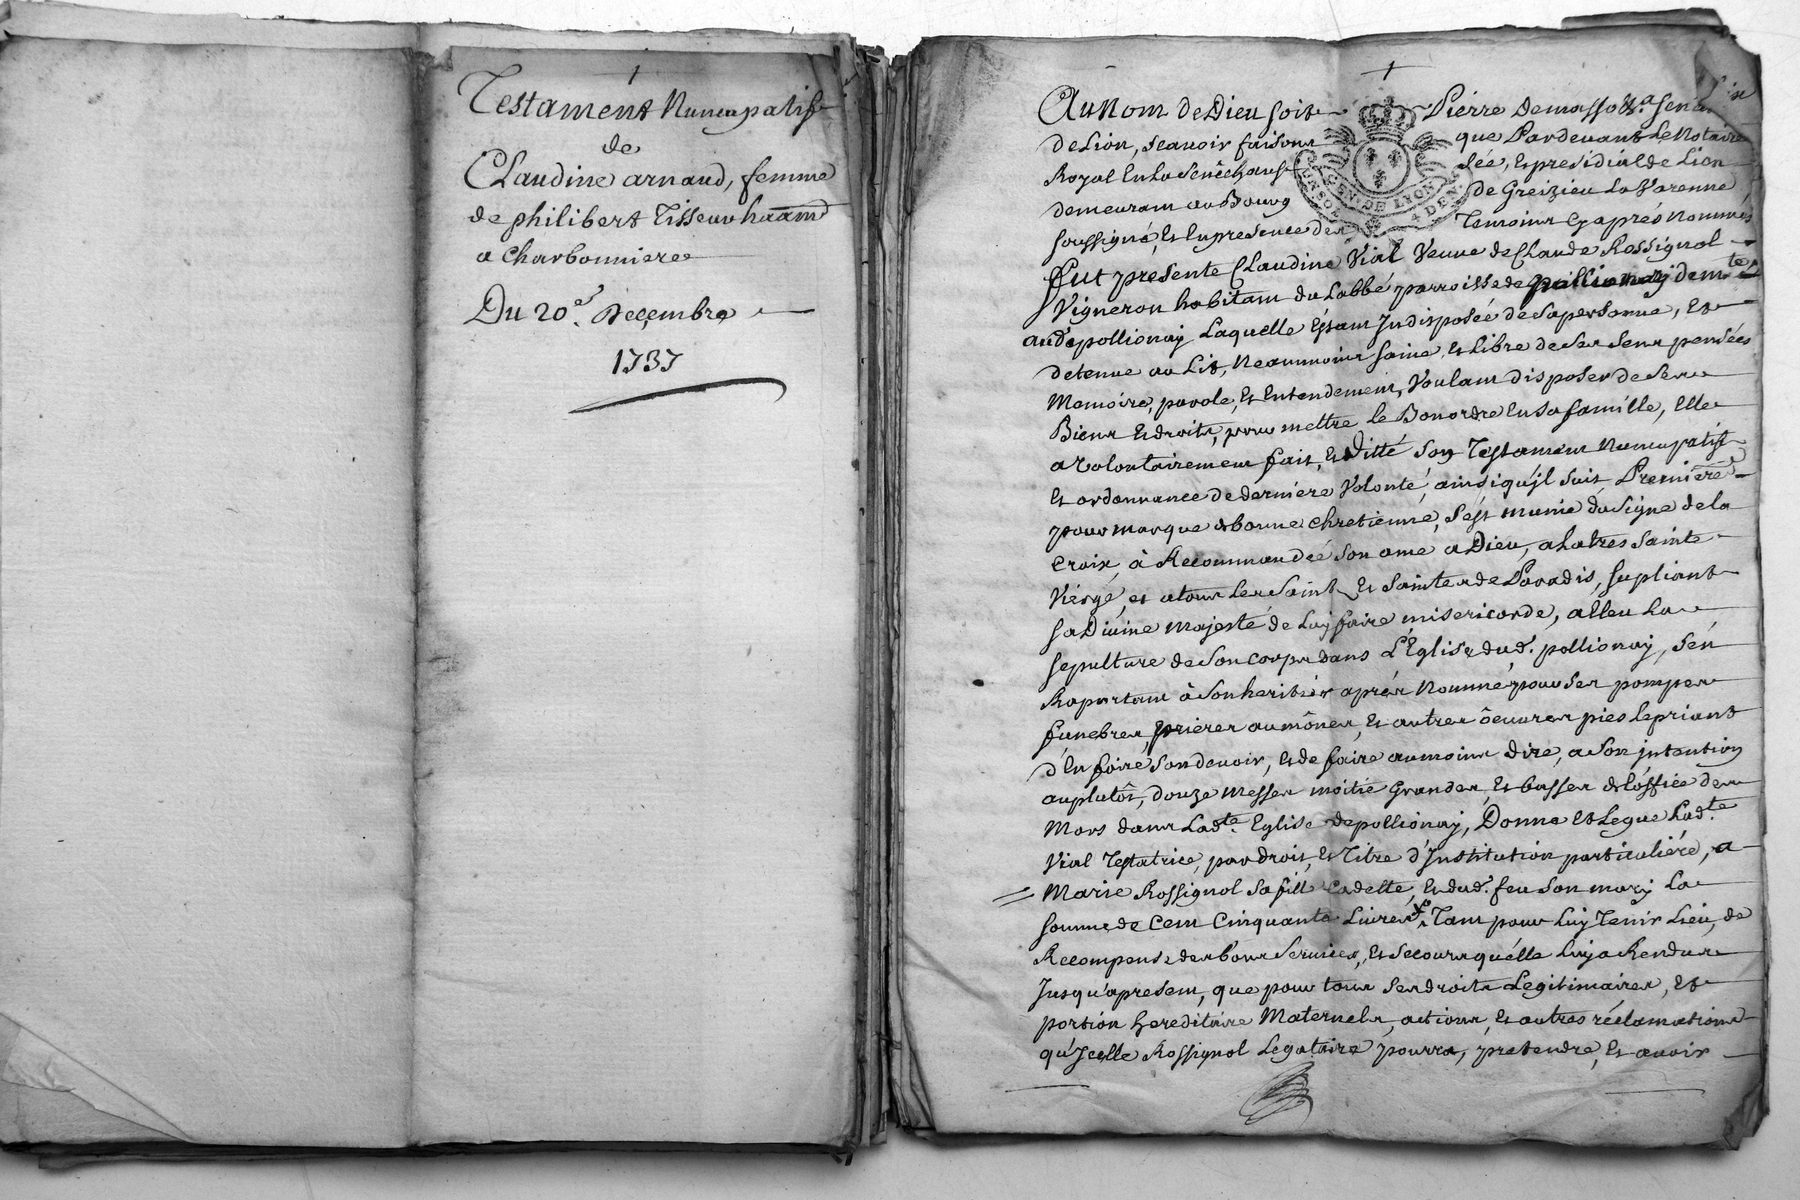 Testament Nuncupatif
de
Claudine arnaud, femme
de philibert Tisseur hāānt
a Charbonniere
Du 20e. Deçembre
1737
Au Nom de Dieu soit Pierre Demasso &.a senéc
de Lion, scavoir faisons que Pardevant Le Notaire
Royal En La Senêchaussée, Et presidial de Lion
demeurant au Bourg de Greizieu La Varenne
soussigné, Et En presence des Temoins Cy aprés Nommés
Fut presente Claudine Vial Veuve de Claude Rossignol
Vigneron habitant du Labbé parroisse de pollionay demte
aud. pollionay Laquelle Etant Indisposée de sa personne, Et
detenue au Lit, Neanmoins saine, Et Libre de ses sens pensées
Memoire, parole, Et Entendement, Voulant disposer de ses
Biens Et droits, pour mettre le Bon ordre En sa famille, Elle
a Volontairement fait, Et Ditté son Testament Nuncupatif
Et ordonnance de derniere Volonté, ainsi qu'jl suit Premiere
pour marque de bonne chretienne, s'est munie du signe de la
Croix, à Recommandée son ame a Dieu, a la tres sainte
Viérge, et a tous Les Saints Et Saintes de Paradis, supliant
sa Divine Majesté de Luy faire misericorde, a Eleu La
sepulture de son corps dans L'Eglise dud. pollionay, s'en
Raportant à son heritiér aprés Nommé pour ses pompes
funebres, prieres aumônes, Et autres oeuvres pies le priant
d'En faire son devoir, Et de faire au moins dire, a son jntention
au plutôt, douze Messes moitié Grandes, Et basses de l'office des
Mors dans Ladte. Eglise de pollionay, Donne Et Legue Ladte.
Vial Testatrice, par droit, Et Titre d'Institution particuliére, a
Marie Rossignol sa fille Cadette, Et dud. feu son mary La
somme de Cent Cinquante Livres, Tant pour Luy Tenir Lieu de
Recompense des bons Services, Et secours qu'élle Luy a Rendus
Jusqu'apresent, que pour tous ses droits Legitimaires, Et
portion hereditaire Maternels, actions, Et autres réclamations
qu'Jcelle Rossignol Legataire pourra, pretendre, Et avoir